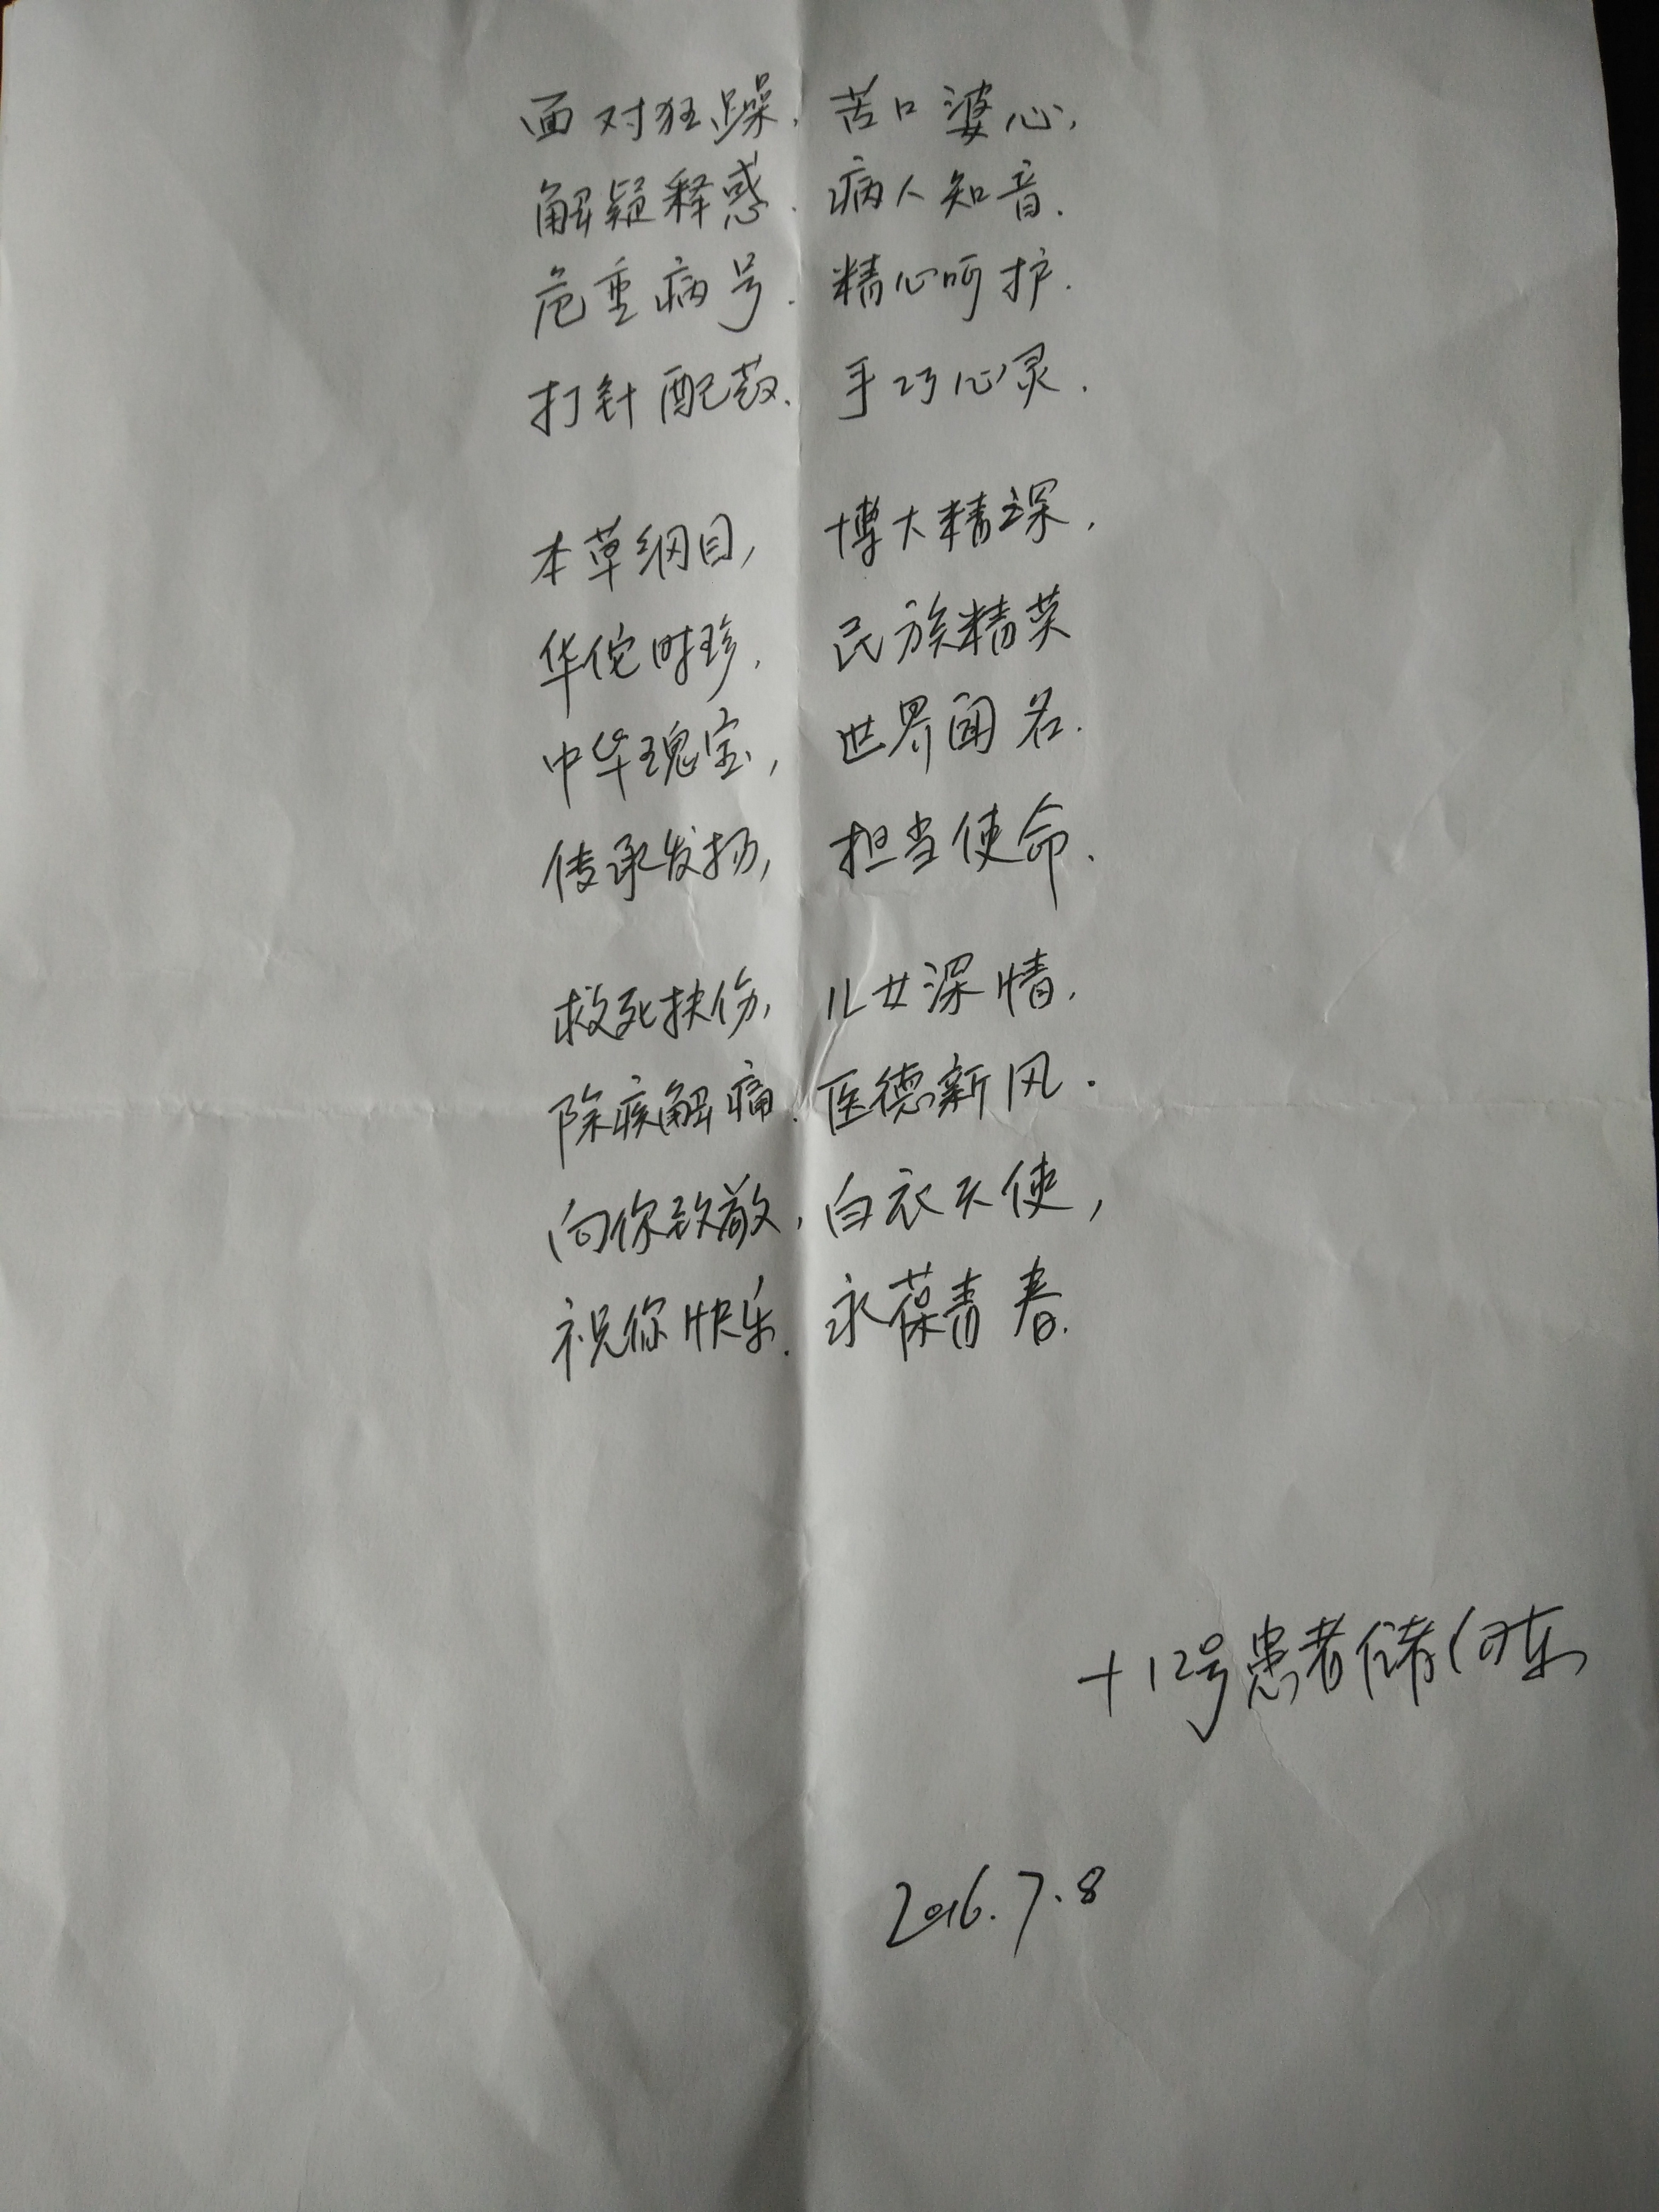 面对狂躁，苦口婆心，
解疑释惑．病人知音．
危重病号．精心呵护．
打针配药．手巧心灵．
本草纲目，博大精深，
华佗时珍，民族精英
中华瑰宝，世界闻名．
传承发扬，担当使命．
救死扶伤，儿女深情，
除疾解痛．医德新风．
向你致敬，白衣天使，
祝你快乐．永葆青春．
+12号患者储向东
2016.7.8